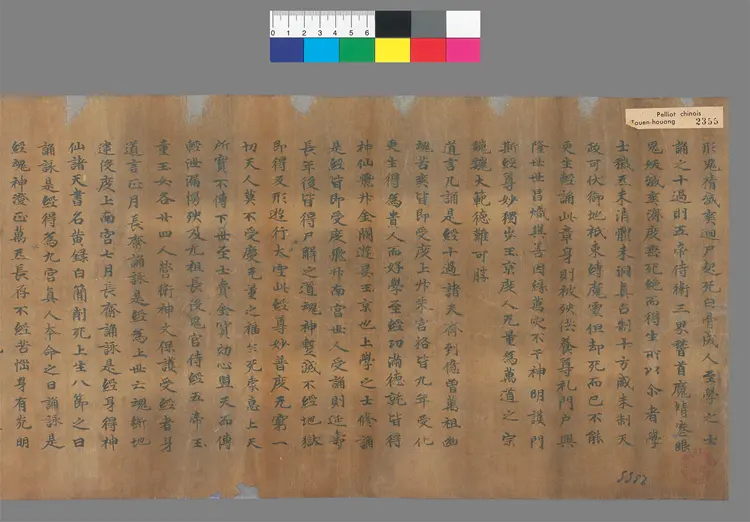 Pelliot chinois
Touen-houang 2355
0 1 2 3 4 5 6
形鬼精滅爽迴尸起死白骨成人至學之士
誦之十過則五帝侍衛三界稽首魔精喪眼
鬼妖滅爽濟度垂死絕而得生所以尒者學
士穢炁未消體未洞真召制十方威未制天
政可伏御地祇束縛魔靈但却死而已不能
更生輕誦此章身則被殃供養尊礼門戶興
隆世世昌熾與善因緣萬災不干神明護門
斯經尊妙獨步玉京度人无量為萬道之宗
巍巍大範德難可勝
道言凡誦是經十過諸天齊到億曾萬祖幽
魂苦爽皆即受度上昇朱宮格皆九年受化
更生得為貴人而好學至經功滿德就皆得
神仙飛昇金闕遊宴玉京也上學之士修誦
是經皆即受度飛昇南宮世人受誦則延壽
長年後皆得尸解之道魂神暫滅不經地獄
即得反形遊行太空此經尊妙普度无窮一
切天人莫不受慶无量之福生死蒙惠上天
所寶不傳下世至士賷金寶効心盟天而傳
輕泄漏慢殃及九祖長役鬼官侍經五帝玉
童玉女各廿四人營衛神文保護受經者身
道言正月長齋誦詠是經為上世亡魂斷地
逮役度上南宮七月長齋誦詠是經身得神
仙諸天書名黃録白簡削死上生八節之日
誦詠是經得為九宮真人本命之日誦詠是
經魂神澄正萬炁長存不經苦惱身有光明